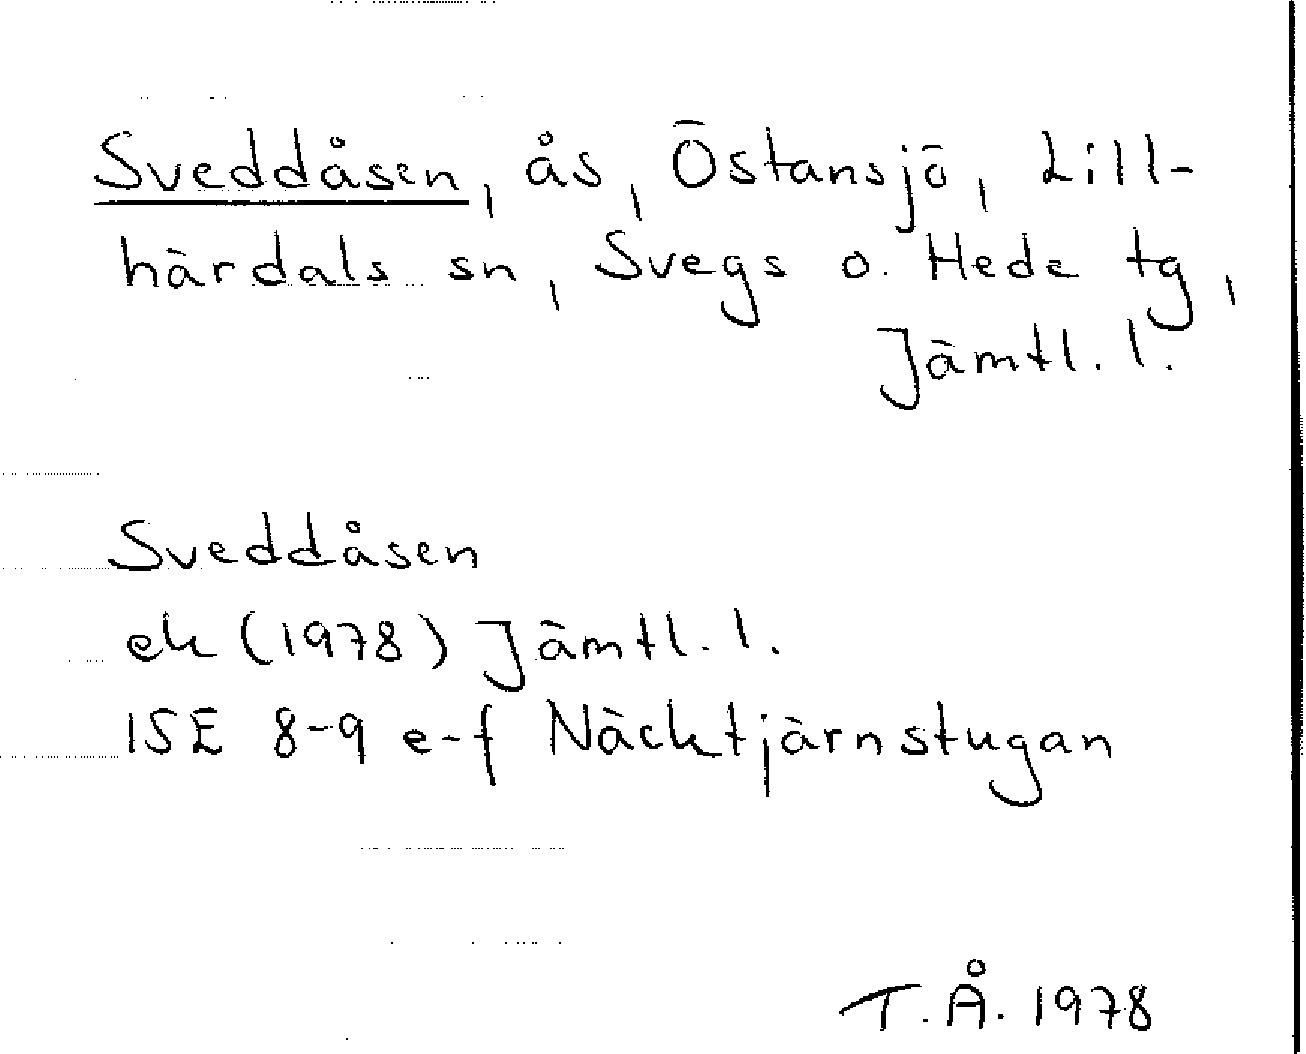 Sveddåsen, ås, Östansjö, Lill-
härdals sn, Svegs o. Hede tg,
Jämtl. l.
Sveddåsen
ek (1978) Jämtl. l.
15E 8-9 e-f Näcktjärnstugan
T.Å. 1978